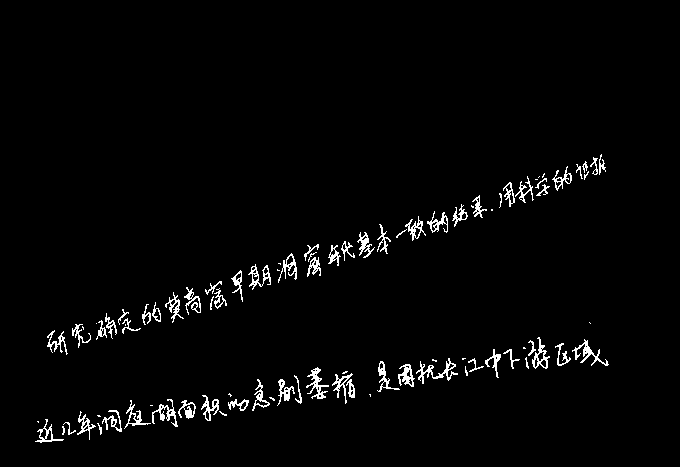 研究确定的莫高窟早期洞窟年代基本一致的结果,用科学的证据
近几年洞庭湖面积的急剧萎缩,是困扰长江中下游区域